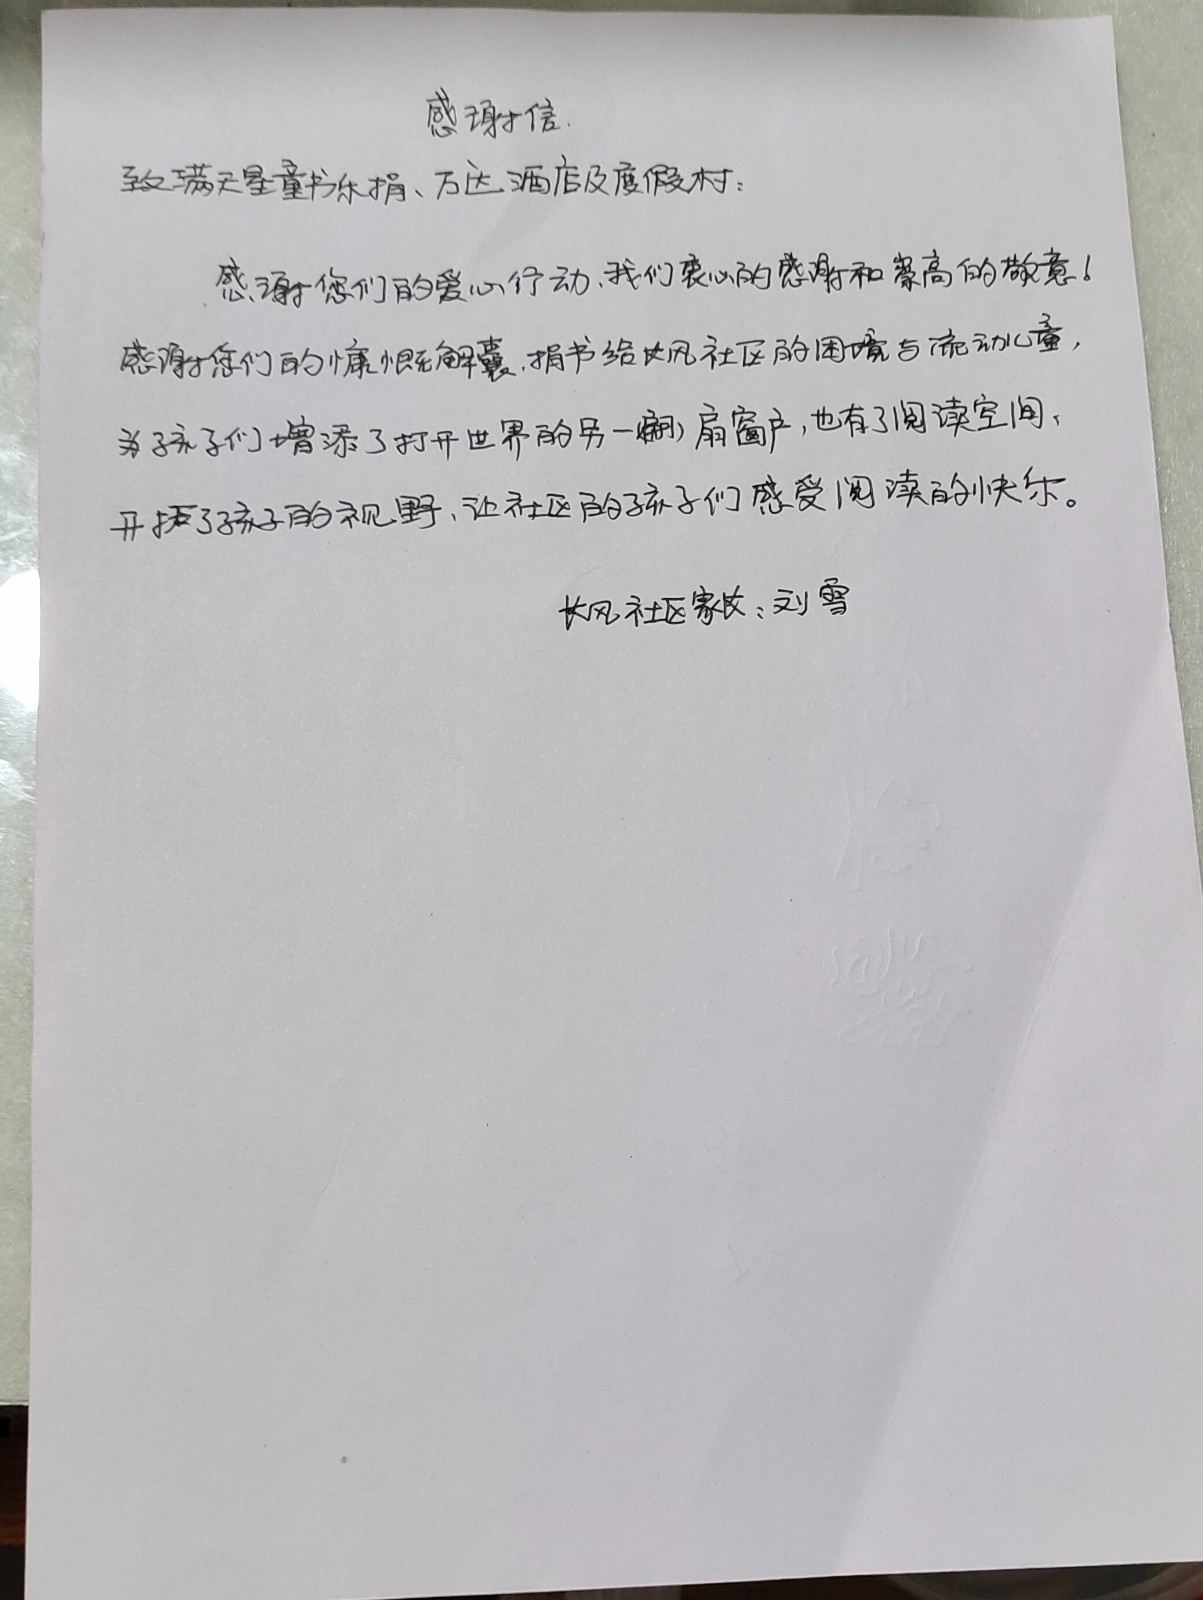 感谢信.
致满天星童书乐捐、万达酒店及度假村：
感谢您们的爱心行动、我们衷心的感谢和崇高的敬意！
感谢您们的慷慨解囊、捐书给长风社区的困境与流动儿童，
为孩子们增添了打开世界的另一扇窗户，也有了阅读空间、
开拓了孩子的视野、让社区的孩子们感受阅读的快乐。
长风社区家长：刘雪